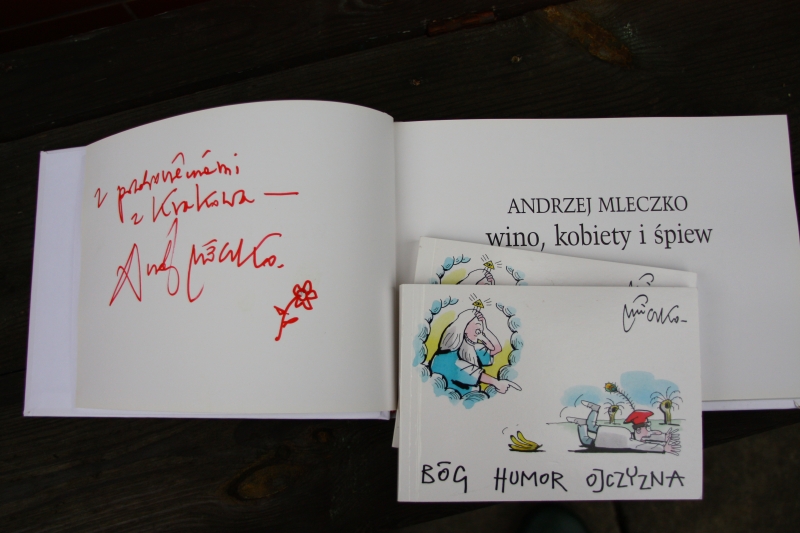 z pozdrowieniami
z Krakowa —
Andrzej Mleczko.
ANDRZEJ MLECZKO
wino, kobiety i śpiew
Mleczko.
BÓG HUMOR OJCZYZNA